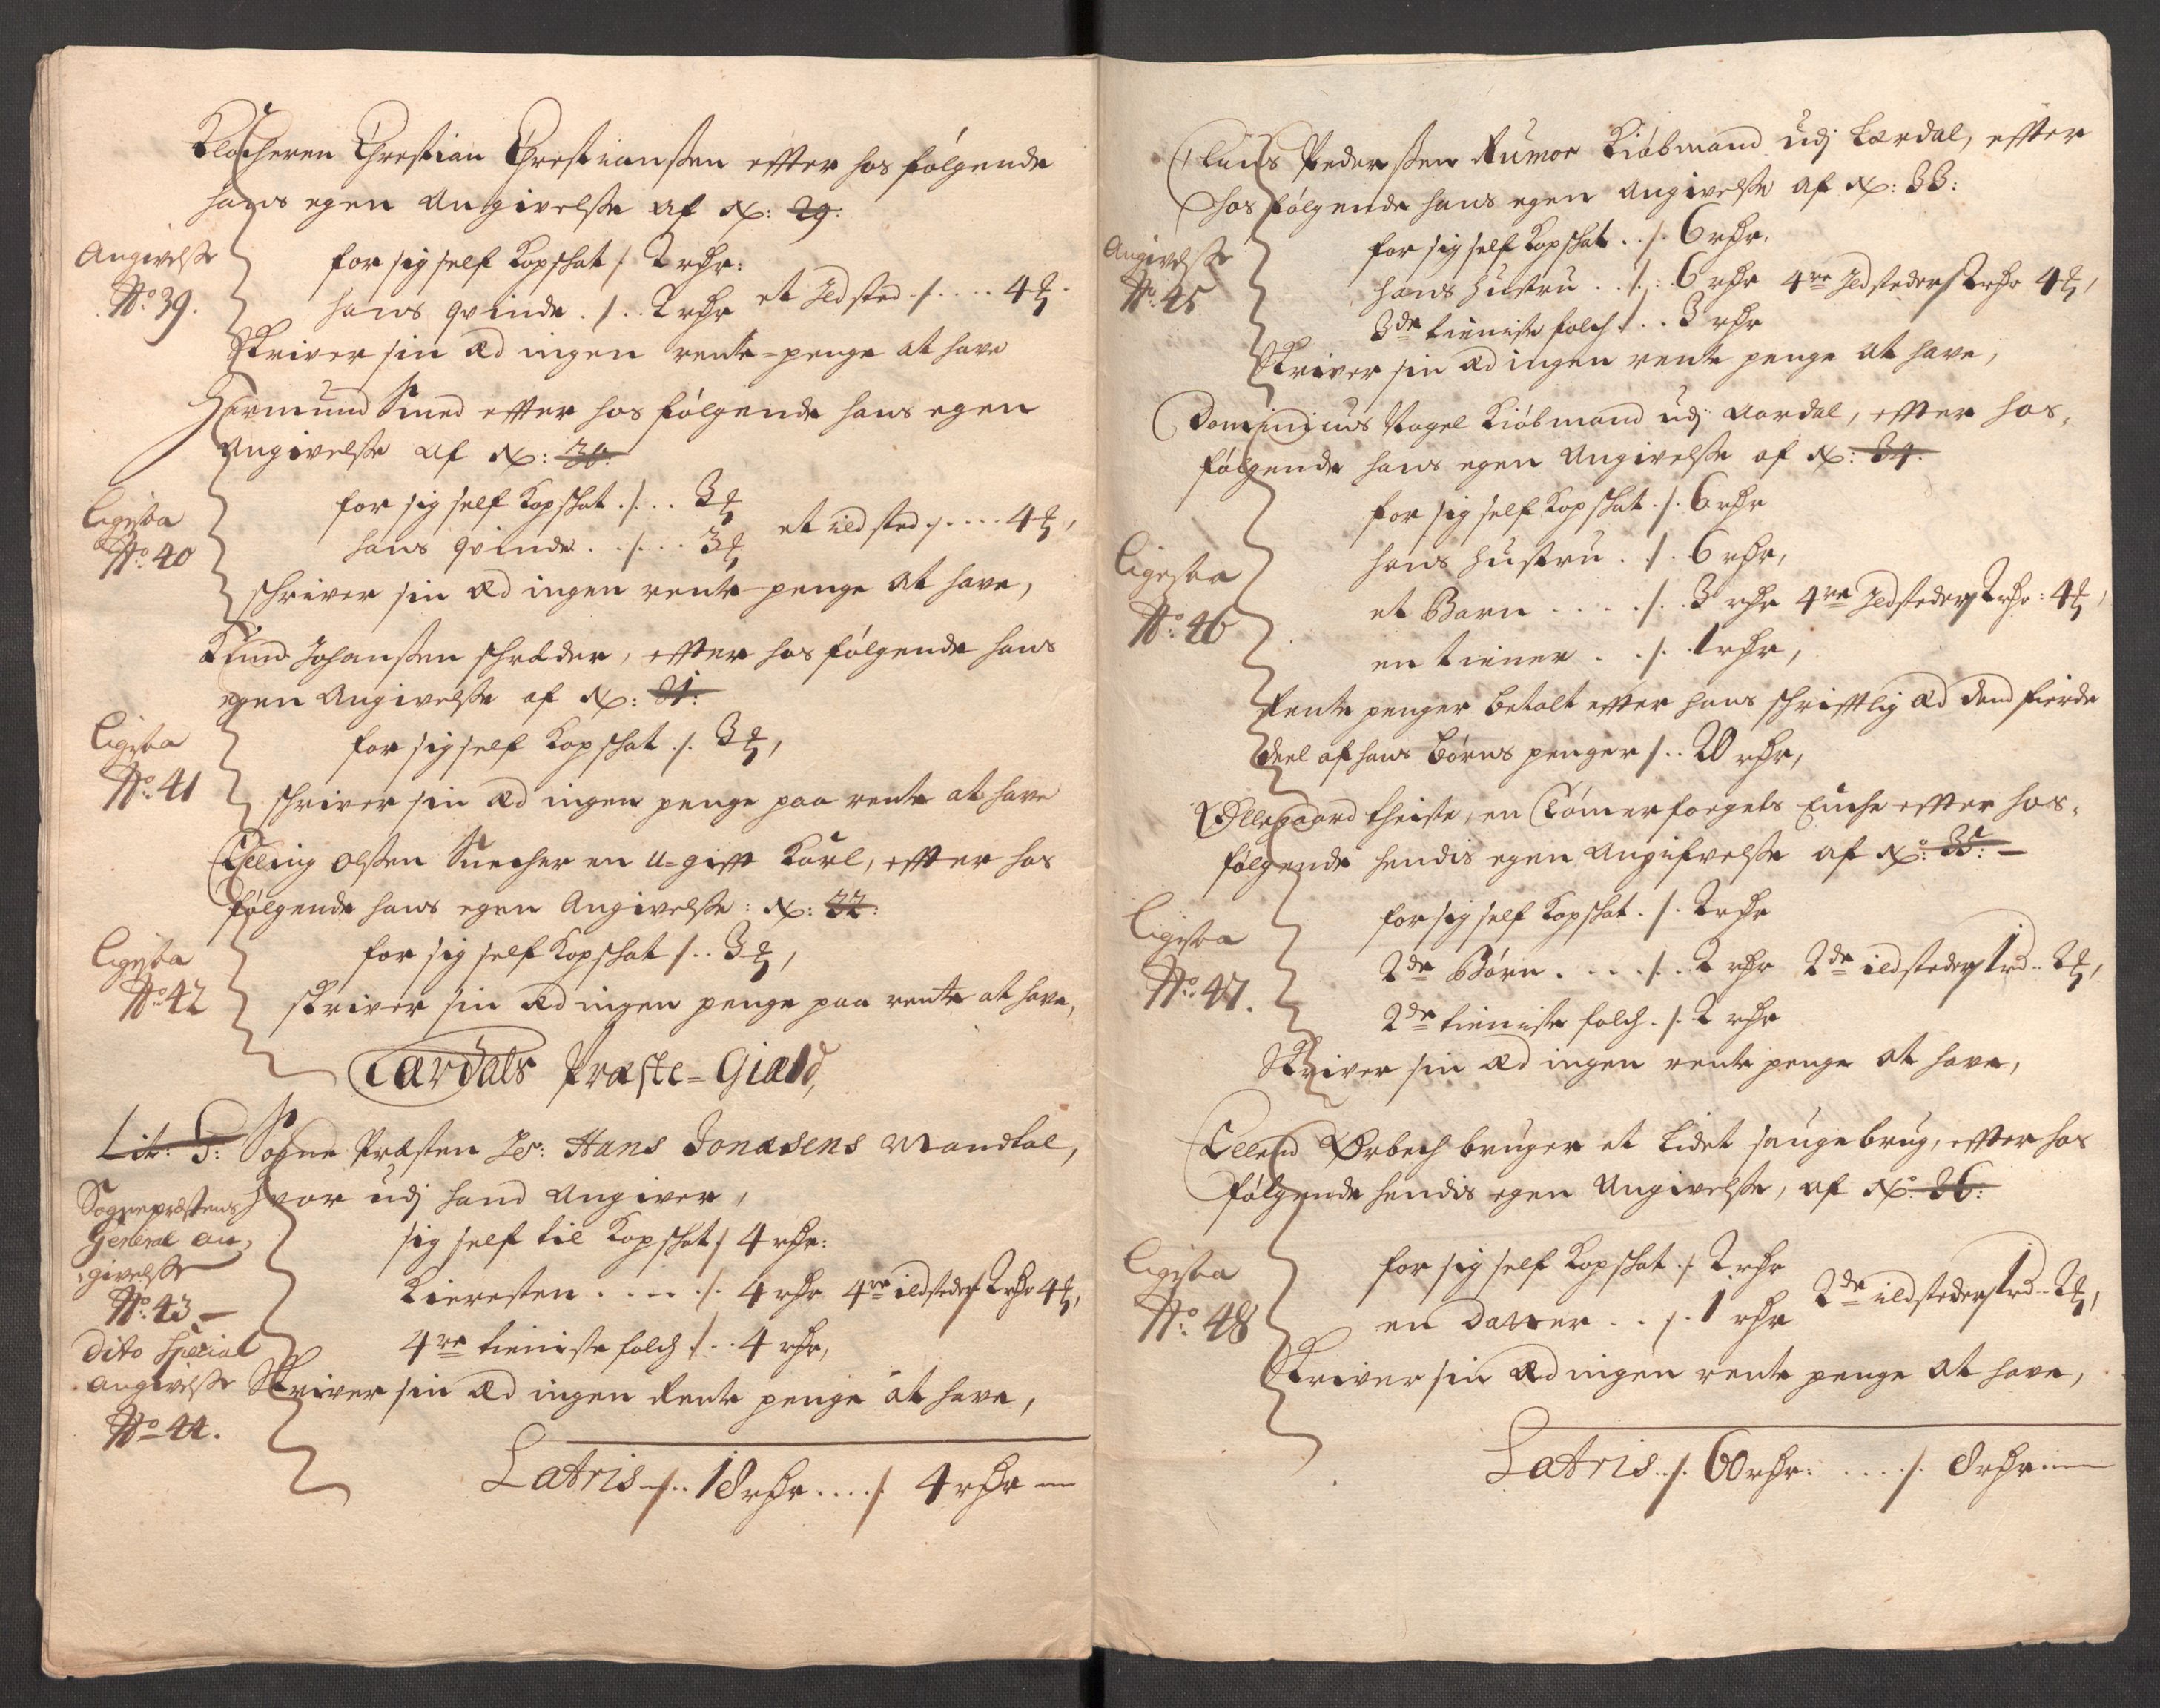 Klocheren Chrestian Chrestiansen effter hos følgende
hans egen Angivelße af N: 29:
Angivelße
No. 39.
for sig self Kopskat /. 2 rdr:
hans qvinde ./.. 2 rdr et Ildsted ./.... 4 ß.
Skriver sin æd ingen rente-penge at have
Hermund Smed effter hos følgende hans egen
Angivelße af N: 30:
Ligesaa
No. 40
for sig self Kopskat ./... 3 ß
hans qvinde ../... 3 ß et ildsted ./.... 4 ß,
schriver sin æd ingen rente-penge at have,
Knud Johanßen schræder, effter hos følgende hans
egen Angivelße af N: 31:
Ligesaa
No. 41
for sig self Kopskat ./. 3 ß,
schriver sin æd ingen penge paa rente at have
Elling Olßen Snecher en u-gifft Karl, effter hos
følgende hans egen Angivelße: N: 32:
Ligesaa
No. 42
for sig self Kopskat /.. 3 ß,
skriver sin æd ingen penge paa rente at have,
Lærdals Præste-Giæld,
Lit: F: Sogne Præsten Hr: Hans Jonæsens Mandtal,
hvor udj hand Angiver,
Sognepræstens
General an-
givelße
No. 43
sig self til Kopskat / 4 rdr:
Kieresten ..... /. 4 rdr 4re ildsteder / 2 rdr 4 ß,
4re tieniste folch /... 4 rdr,
Dito Special
angivelße
No. 44.
Skriver sin æd ingen Rente penge at have,
Latris ./.. 18 rdr ..../ 4 rdr
Claus Pederßen Rumor Kiøbmand udj Lærdal, effter
hos følgende hans egen Angivelße af N: 33:
Angivelße
No. 45
for sig self Kopskat ../. 6 rdr.
hans Hustru ../.: 6 rdr 4re Ildsteder / 2 rdr 4 ß,
3de tieniste folch /... 3 rdr
Skriver sin æd ingen rente penge at have,
Dominicus Nagel Kiøbmand udj Aardal, effter hos-
følgende hans egen Angivelße af N: 34.
Ligesaa
No. 46
for sig self Kopskat ./. 6 rdr
hans Hustru ../. 6 rdr,
et Barn ...../. 3 rdr 4re Ildsteder / 2 rdr: 4 ß,
en tiener ../. 1 rdr,
Rente penger betalt effter hans schrifftlig æd dend fierde
deel af hans Børns penger /... 20 rdr,
Øllegaard theiste, en Tømerfogets Enche effter hos-
følgende hendis egen Angifvelße af No: 35:
Ligesaa
No. 47.
for sig self Kopskat ./. 2 rdr
2de Børn ..../.. 2 rdr 2de ildsteder / 1 rd.. 2 ß,
2de tieniste folch ./. 2 rdr
Skriver sin æd ingen rente penge at have,
Ellend Ørbech bruger et lidet saugebrug, effter hos
følgende hendis egen Angivelße, af No: 36:
Ligesaa
No. 48
for sig self Kopskat ./. 2 rdr
en Datter ../. 1 rdr 2de ildsteder / 1 rd.. 2 ß,
Skriver sin æd ingen rente penge at have,
Latris ../. 60 rdr: ..../. 8 rdr